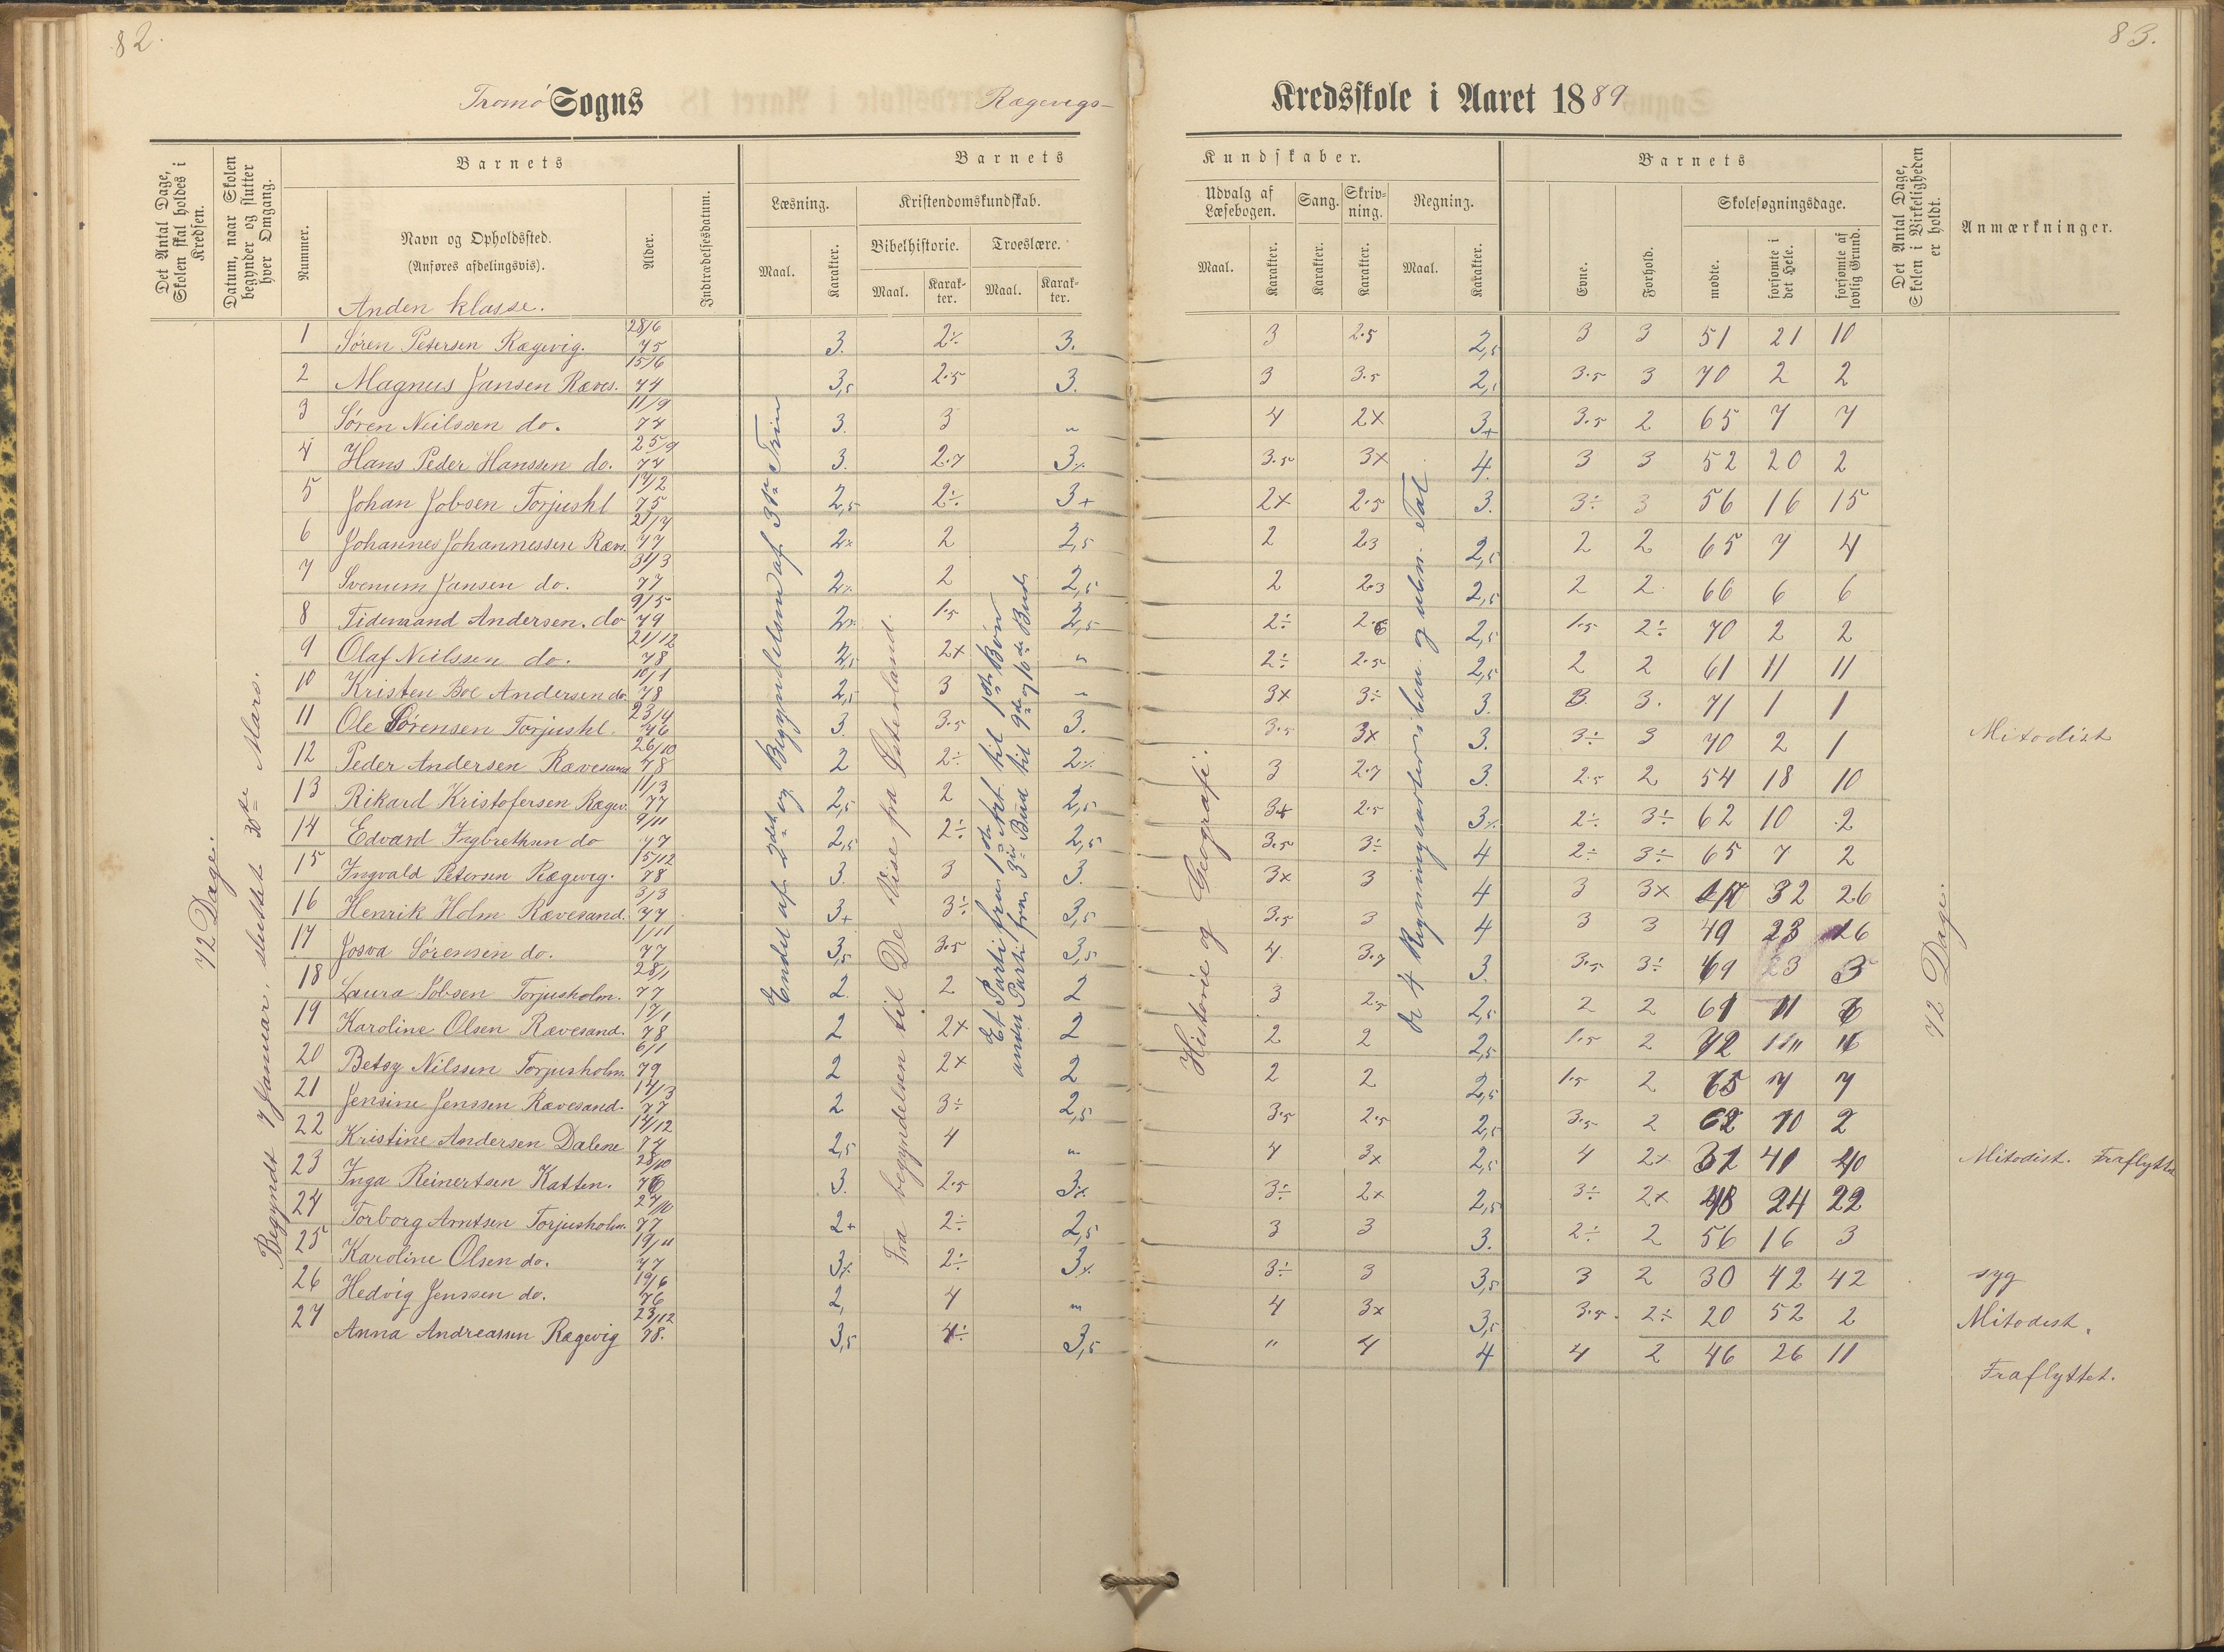 82.
83.
Tromø Sogns Rægevigs- Kredsskole i Aaret 1889
Det Antal Dage, Skolen skal holdes i Kredsen.
Datum, naar Skolen begynder og slutter hver Omgang.
Barnets
Nummer.
Navn og Opholdssted.
(Anføres afdelingsvis).
Alder.
Indtrædelsesdatum.
Barnets Kundskaber.
Læsning.
Maal.
Karakter.
Kristendomskundskab.
Bibelhistorie.
Maal.
Karakter.
Troeslære.
Maal.
Karakter.
Udvalg af Læsebogen.
Maal.
Karakter.
Sang.
Karakter.
Skrivning.
Karakter.
Regning.
Maal.
Karakter.
Barnets
Evne.
Forhold.
Skolesøgningsdage.
mødte.
forsømte i det Hele.
forsømte af lovlig Grund.
Det Antal Dage, Skolen i Virkeligheden er holdt.
Anmærkninger.
72 Dage.
Begyndt 7 Januar, sluttet 30te Mars.
Endel af 2det og Begyndelsen af 3die Trin
Fra begyndelsen til De Vise fra Østerland.
Et Parti fra 1ste Art. til 1ste Bøn
andet Parti fra 3die Bud til 9de og 10de Bud.
Historie og Geografi.
De 4 Regningsarter i ben. og uben. Tal
72 Dage.
Anden klasse.
1 Søren Petersen Rægevig. 28/6 75 3. 2÷ 3. 3 2.5 2,5 3 3 51 21 10
2 Magnus Jansen Ræves. 15/6 74 3,5 2.5 3. 3 3.5 2,5 3.5 3 70 2 2
3 Søren Neilssen do. 11/9 74 3. 3 " 4 2x 3+ 3.5 2 65 7 7
4 Hans Peder Hanssen do. 25/9 74 3. 2.7 3÷ 3.5 3x 4. 3 3 52 20 2
5 Johan Jobsen Torjushl 17/2 75 2,5 2÷ 3+ 2x 2.5 3. 3÷ 3 56 16 15
6 Johannes Johannessen Ræves. 21/7 77 2x 2 2,5 2 2.3 2,5 2 2 65 7 4
7 Svenum Jansen do. 31/3 77 2÷ 2 2,5 2 2.3 2,5 2 2. 66 6 6
8 Tidemand Andersen. do 9/5 79 2÷ 1.5 2,5 2÷ 2.6 2,5 1.5 2÷ 70 2 2
9 Olaf Neilssen do. 21/12 78 2,5 2x " 2÷ 2.5 2,5 2 2 61 11 11
10 Kristen Boe Andersen do. 10/1 78 2,5 3 " 3x 3÷ 3. 3. 3. 71 1 1
11 Ole Sørensen Torjushl. 23/4 76 3. 3.5 3. 3.5 3x 3. 3÷ 3 70 2 1 Mitodist
12 Peder Andersen Rævesand 26/10 78 2 2÷ 2÷ 3 2.7 3. 2.5 2 54 18 10
13 Rikard Kristofersen Rægev. 11/3 77 2,5 2 2,5 3x 2.5 3÷ 2÷ 3÷ 62 10 2
14 Edvard Ingbrethsen do 9/11 77 2,5 2÷ 2,5 3.5 3÷ 4 2÷ 3÷ 65 7 2
15 Ingvald Petersen Rægevig. 15/12 78 3. 3 3. 3x 3 4 3 3x 32 26
16 Henrik Holm Rævesand. 3/3 77 3+ 3÷ 3,5 3.5 3 4 3 3 49 23
17 Josva Sørensen do. 1/11 77 3,5 3.5 3,5 4 3.7 3. 3.5 3÷ 69 3
18 Laura Jobsen Torjusholm. 28/1 77 2. 2 2 3 2.5 2,5 2 2 61 11
19 Karoline Olsen Rævesand. 17/1 78 2 2x 2 2 2 2,5 1.5 2 72
20 Betsy Nilssen Torjusholm. 6/1 79 2 2x 2 2 2 2,5 1.5 2 65 7 7
21 Jensine Jenssen Rævesand. 14/3 77 2 3÷ 2,5 3.5 2.5 2,5 3.5 2 62 10 2
22 Kristine Andersen Dalene 14/12 74 2,5 4 " 4 3x 2,5 4 2x 31 41 40 Mitodist. Fraflyttet
23 Inga Reinertsen Katten. 28/10 76 3. 2.5 3x 3÷ 2x 2,5 3÷ 2x 48 24 22
24 Torborg Arntsen Torjusholm. 27/10 77 2+ 2÷ 2,5 3 3 3. 2÷ 2 56 16 3
25 Karoline Olsen do. 19/11 77 3÷ 2÷ 3÷ 3÷ 3 3,5 3 2 30 42 42 syg
26 Hedvig Jenssen do. 19/6 76 2, 4 " 4 3x 3,5 3.5. 2÷ 20 52 2 Mitodist.
27 Anna Andreassen Rægevig 23/12 78. 3,5 4÷ 3,5 " 4 4 4 2 46 26 11 Fraflyttet.